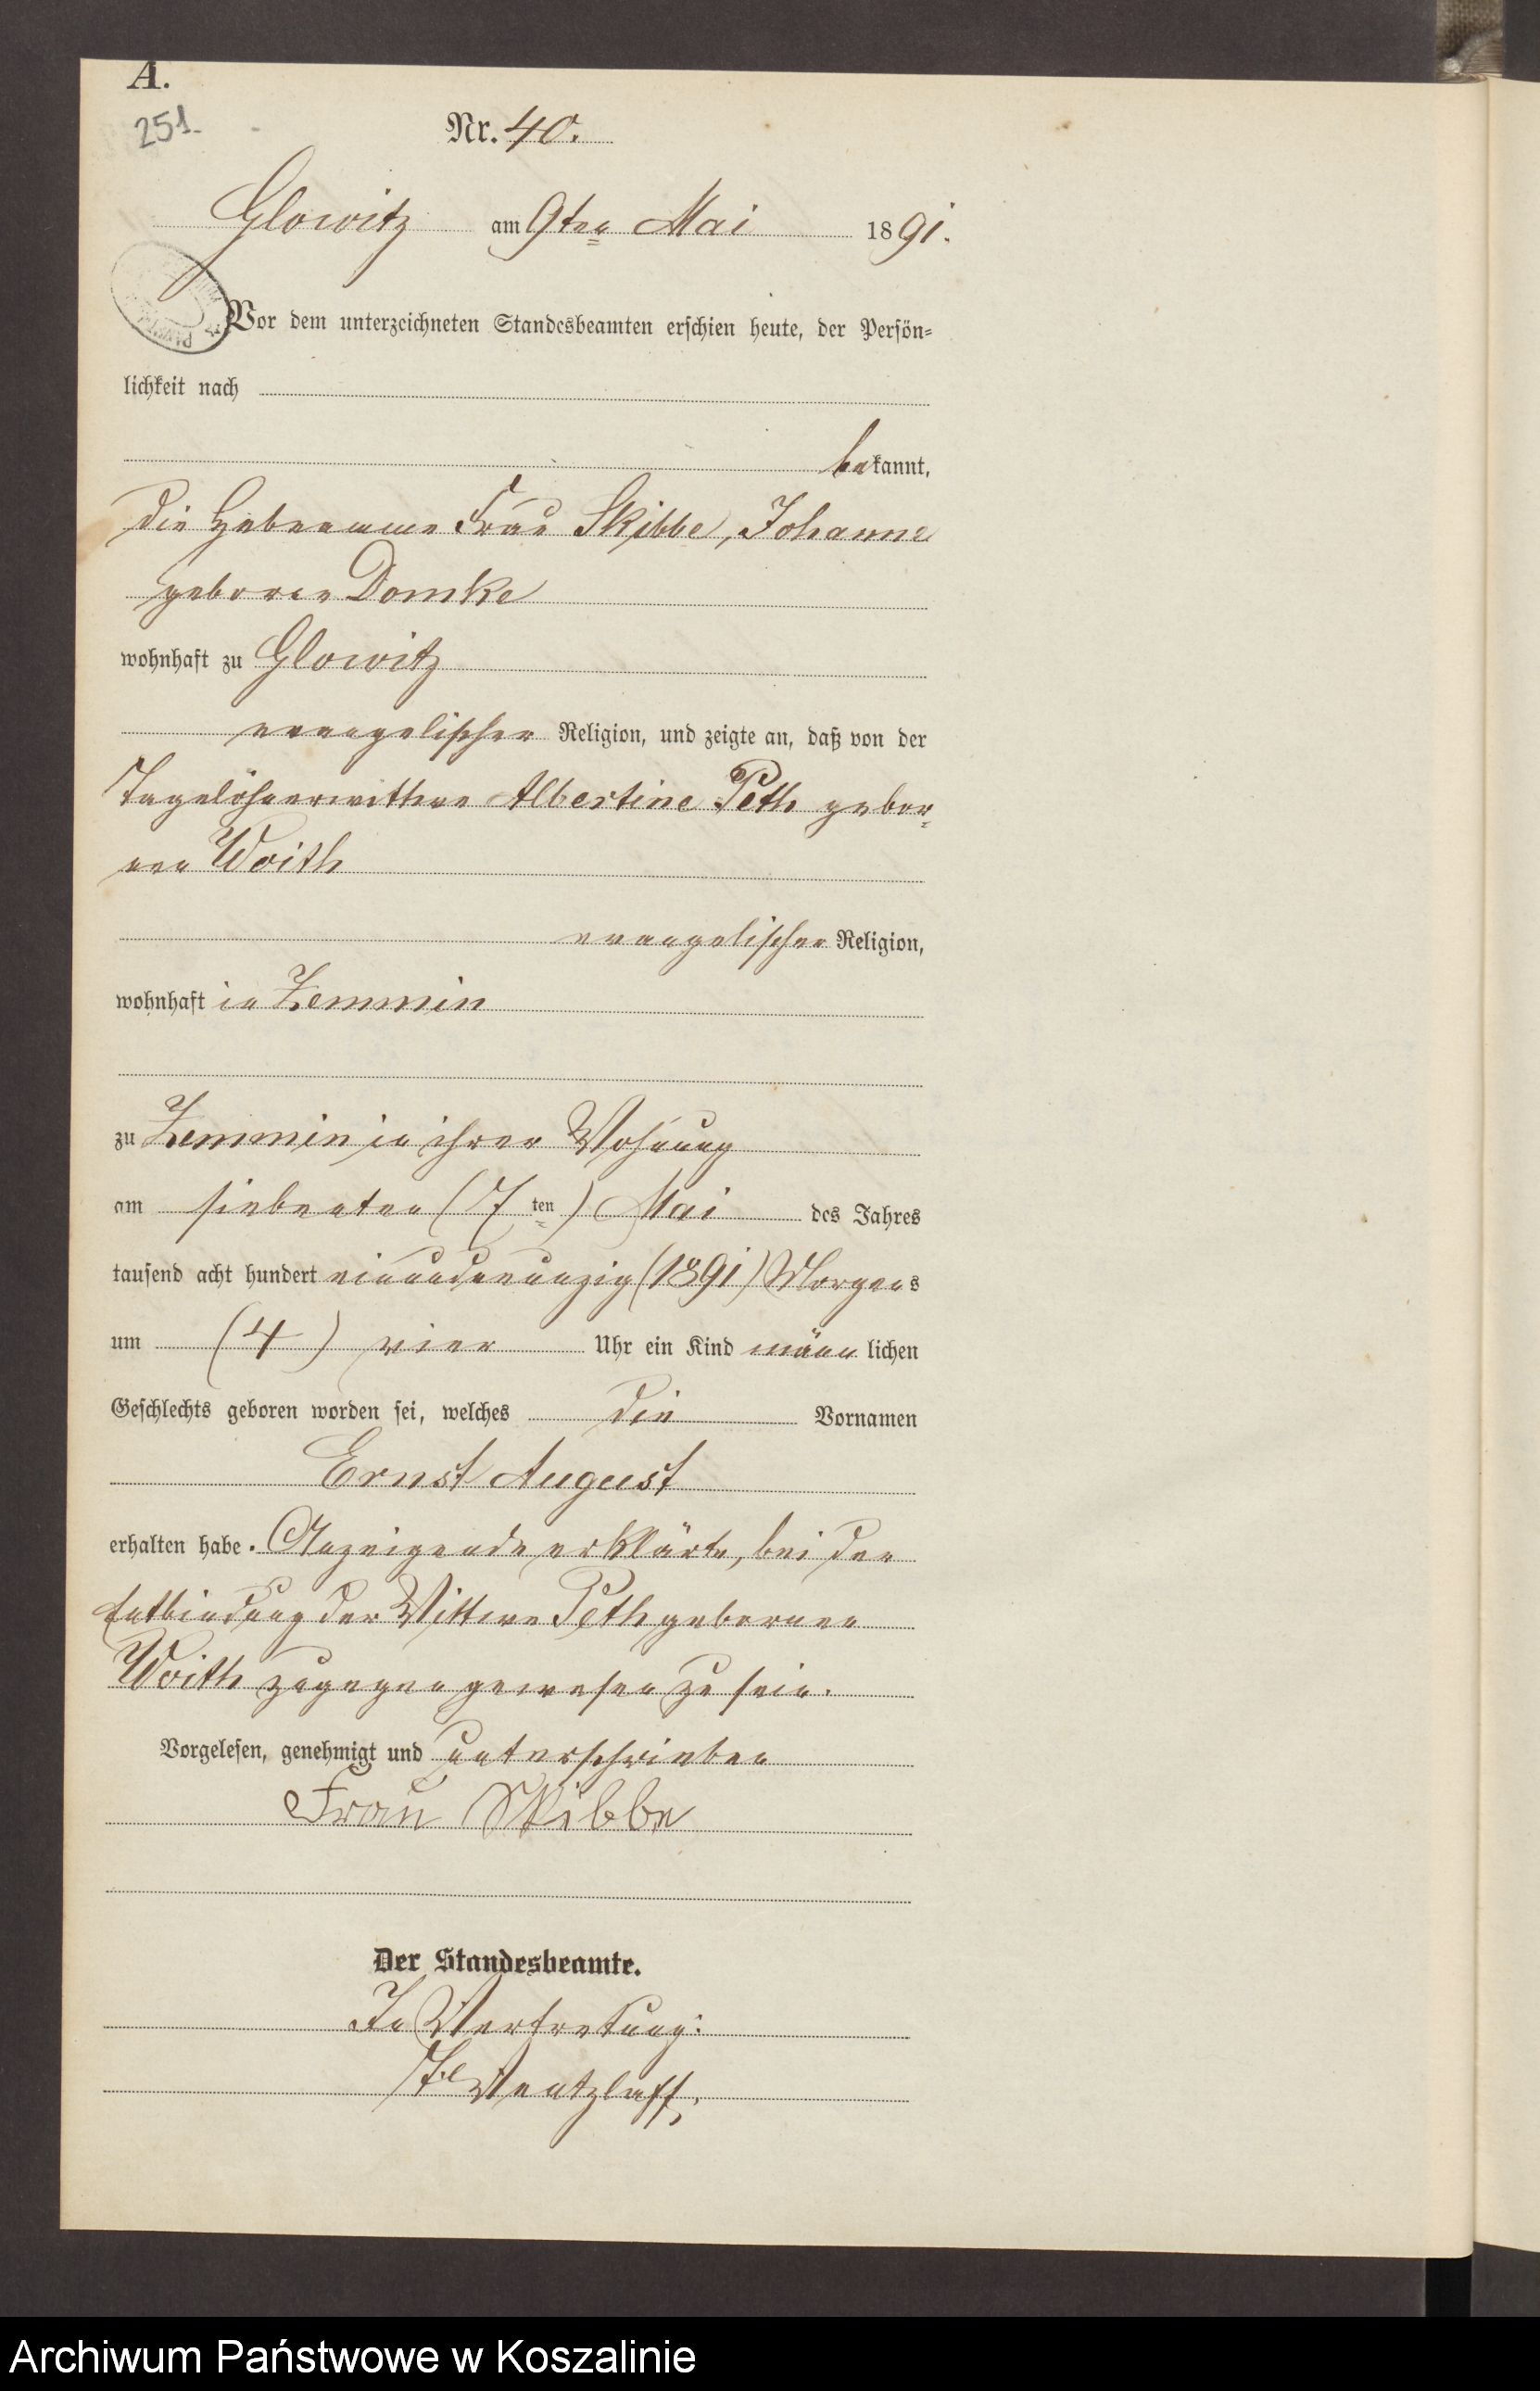 A.
251.
Nr. 40.
Glowitz am 9ten Mai 1891.
Vor dem unterzeichneten Standesbeamten erschien heute, der Persön-
lichkeit nach
bekannt,
die Hebeamme Frau Skibbe, Johanne
geboren Domke
wohnhaft zu Glowitz
evangelischer Religion, und zeigte an, daß von der
Tagelöhnerwittwe Albertine Peth gebor-
nen Woith
evangelischer Religion,
wohnhaft in Zemmin
zu Zemmin in ihrer Wohnung
am siebenten (7 ten) Mai des Jahres
tausend acht hundert einundneunzig (1891) Morgens
um (4) vier Uhr ein Kind männlichen
Geschlechts geboren worden sei, welches die Vornamen
Ernst August
erhalten habe. Anzeigende erklärte, bei der
Entbindung der Wittwe Peth gebornen
Woith zugegen gewesen zu sein.
Vorgelesen, genehmigt und unterschrieben
Frau Skibbe
Der Standesbeamte.
In Vertretung:
Wentzlaff.
Archiwum Państwowe w Koszalinie